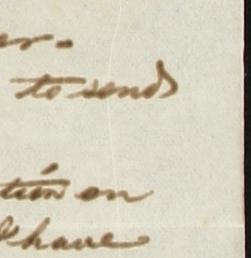 er.
to send
tion on
I have